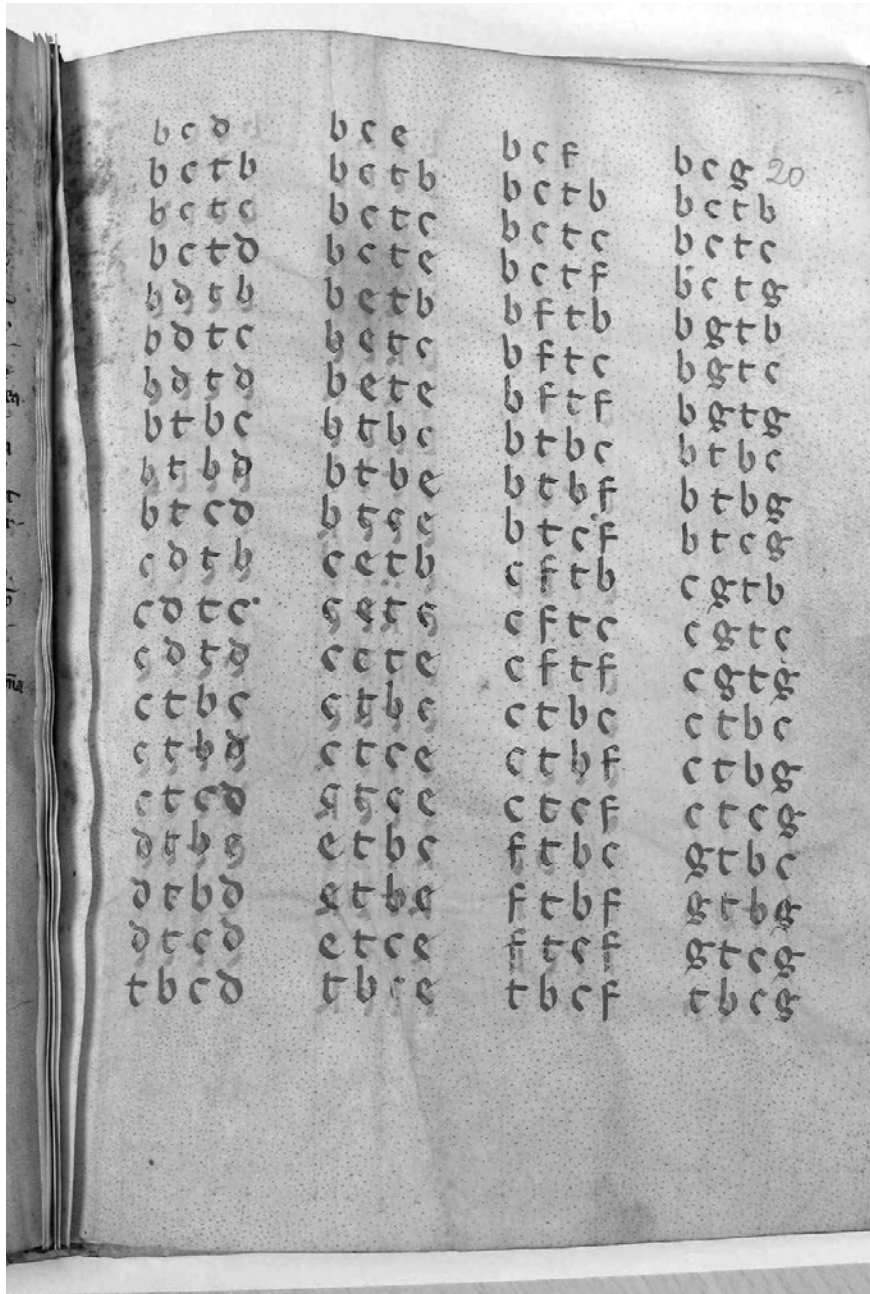 b c d
b c t b
b c t c
b c t d
b d t b
b d t c
b d t d
b t b c
b t b d
b t c d
c d t b
c d t c
c d t d
c t b c
c t b d
c t c d
d t b c
d t b d
d t c d
t b c d
b c e
b c t b
b c t c
b c t e
b e t b
b e t c
b e t e
b t b c
b t b e
b t c e
c e t b
c e t c
c e t e
c t b c
c t c e
c t c e
e t b c
e t b e
e t c e
t b c e
b c f
b c t b
b c t c
b c t f
b f t b
b f t c
b f t f
b t b c
b t b f
b t c f
c f t b
c f t c
c f t f
c t b c
c t b f
c t c f
f t b c
f t b f
f t c f
t b c f
b c g 20
b c t b
b c t c
b c t g
b g t b
b g t c
b g t g
b t b c
b t b g
b t c g
c g t b
c g t c
c g t g
c t b c
c t b g
c t c g
g t b c
g t b g
g t c g
t b c g